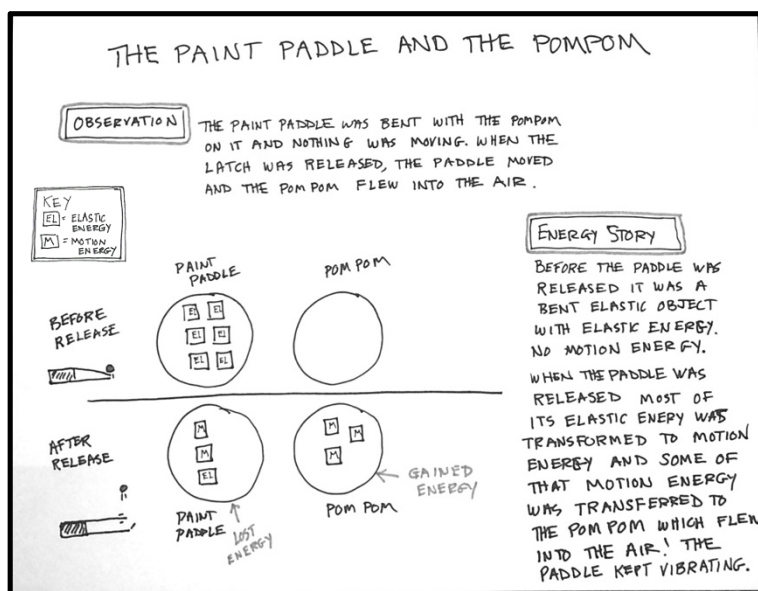 THE PAINT PADDLE AND THE POMPOM
OBSERVATION
THE PAINT PADDLE WAS BENT WITH THE POMPOM
ON IT AND NOTHING WAS MOVING. WHEN THE
LATCH WAS RELEASED, THE PADDLE MOVED
AND THE POM POM FLEW INTO THE AIR.
KEY
EL = ELASTIC
ENERGY
M = MOTION
ENERGY
PAINT
PADDLE
POM POM
BEFORE
RELEASE
EL EL
EL EL
EL EL
AFTER
RELEASE
M
M
EL
M
M
M
GAINED
ENERGY
PAINT
PADDLE
LOST
ENERGY
POM POM
ENERGY STORY
BEFORE THE PADDLE WAS
RELEASED IT WAS A
BENT ELASTIC OBJECT
WITH ELASTIC ENERGY.
NO MOTION ENERGY.
WHEN THE PADDLE WAS
RELEASED MOST OF
ITS ELASTIC ENERY WAS
TRANSFORMED TO MOTION
ENERGY AND SOME OF
THAT MOTION ENERGY
WAS TRANSFERRED TO
THE POM POM WHICH FLEW
INTO THE AIR! THE
PADDLE KEPT VIBRATING.